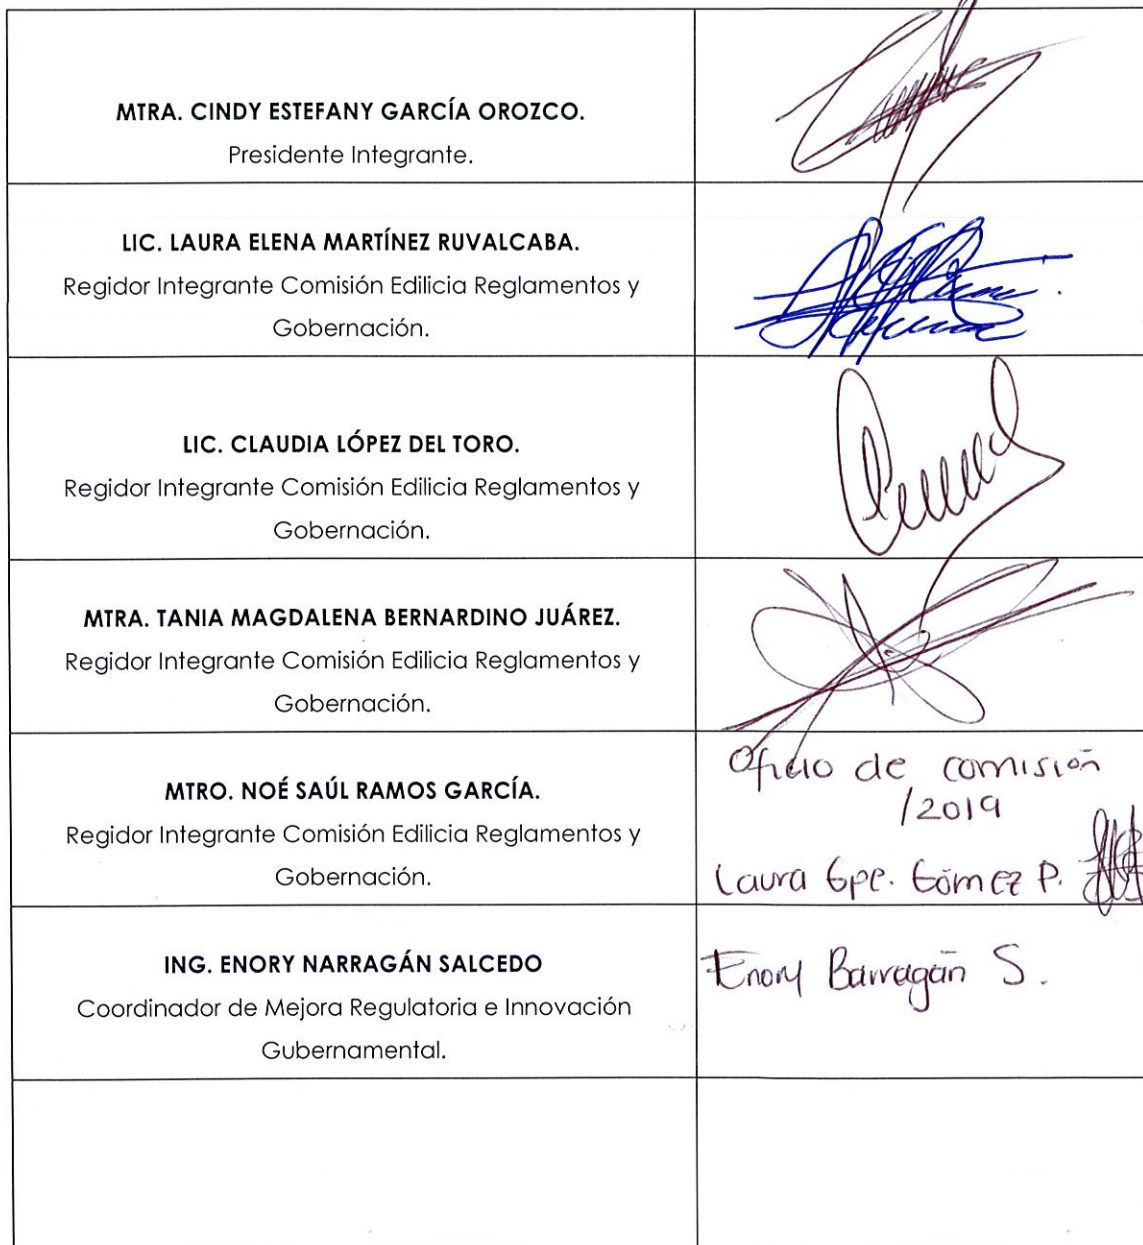 MTRA. CINDY ESTEFANY GARCÍA OROZCO.
Presidente Integrante.
LIC. LAURA ELENA MARTÍNEZ RUVALCABA.
Regidor Integrante Comisión Edilicia Reglamentos y
Gobernación.
LIC. CLAUDIA LÓPEZ DEL TORO.
Regidor Integrante Comisión Edilicia Reglamentos y
Gobernación.
MTRA. TANIA MAGDALENA BERNARDINO JUÁREZ.
Regidor Integrante Comisión Edilicia Reglamentos y
Gobernación.
MTRO. NOÉ SAÚL RAMOS GARCÍA.
Regidor Integrante Comisión Edilicia Reglamentos y
Gobernación.
Oficio de comisión
/2019
Laura Gpe. Gómez P.
ING. ENORY NARRAGÁN SALCEDO
Coordinador de Mejora Regulatoria e Innovación
Gubernamental.
Enory Barragán S.